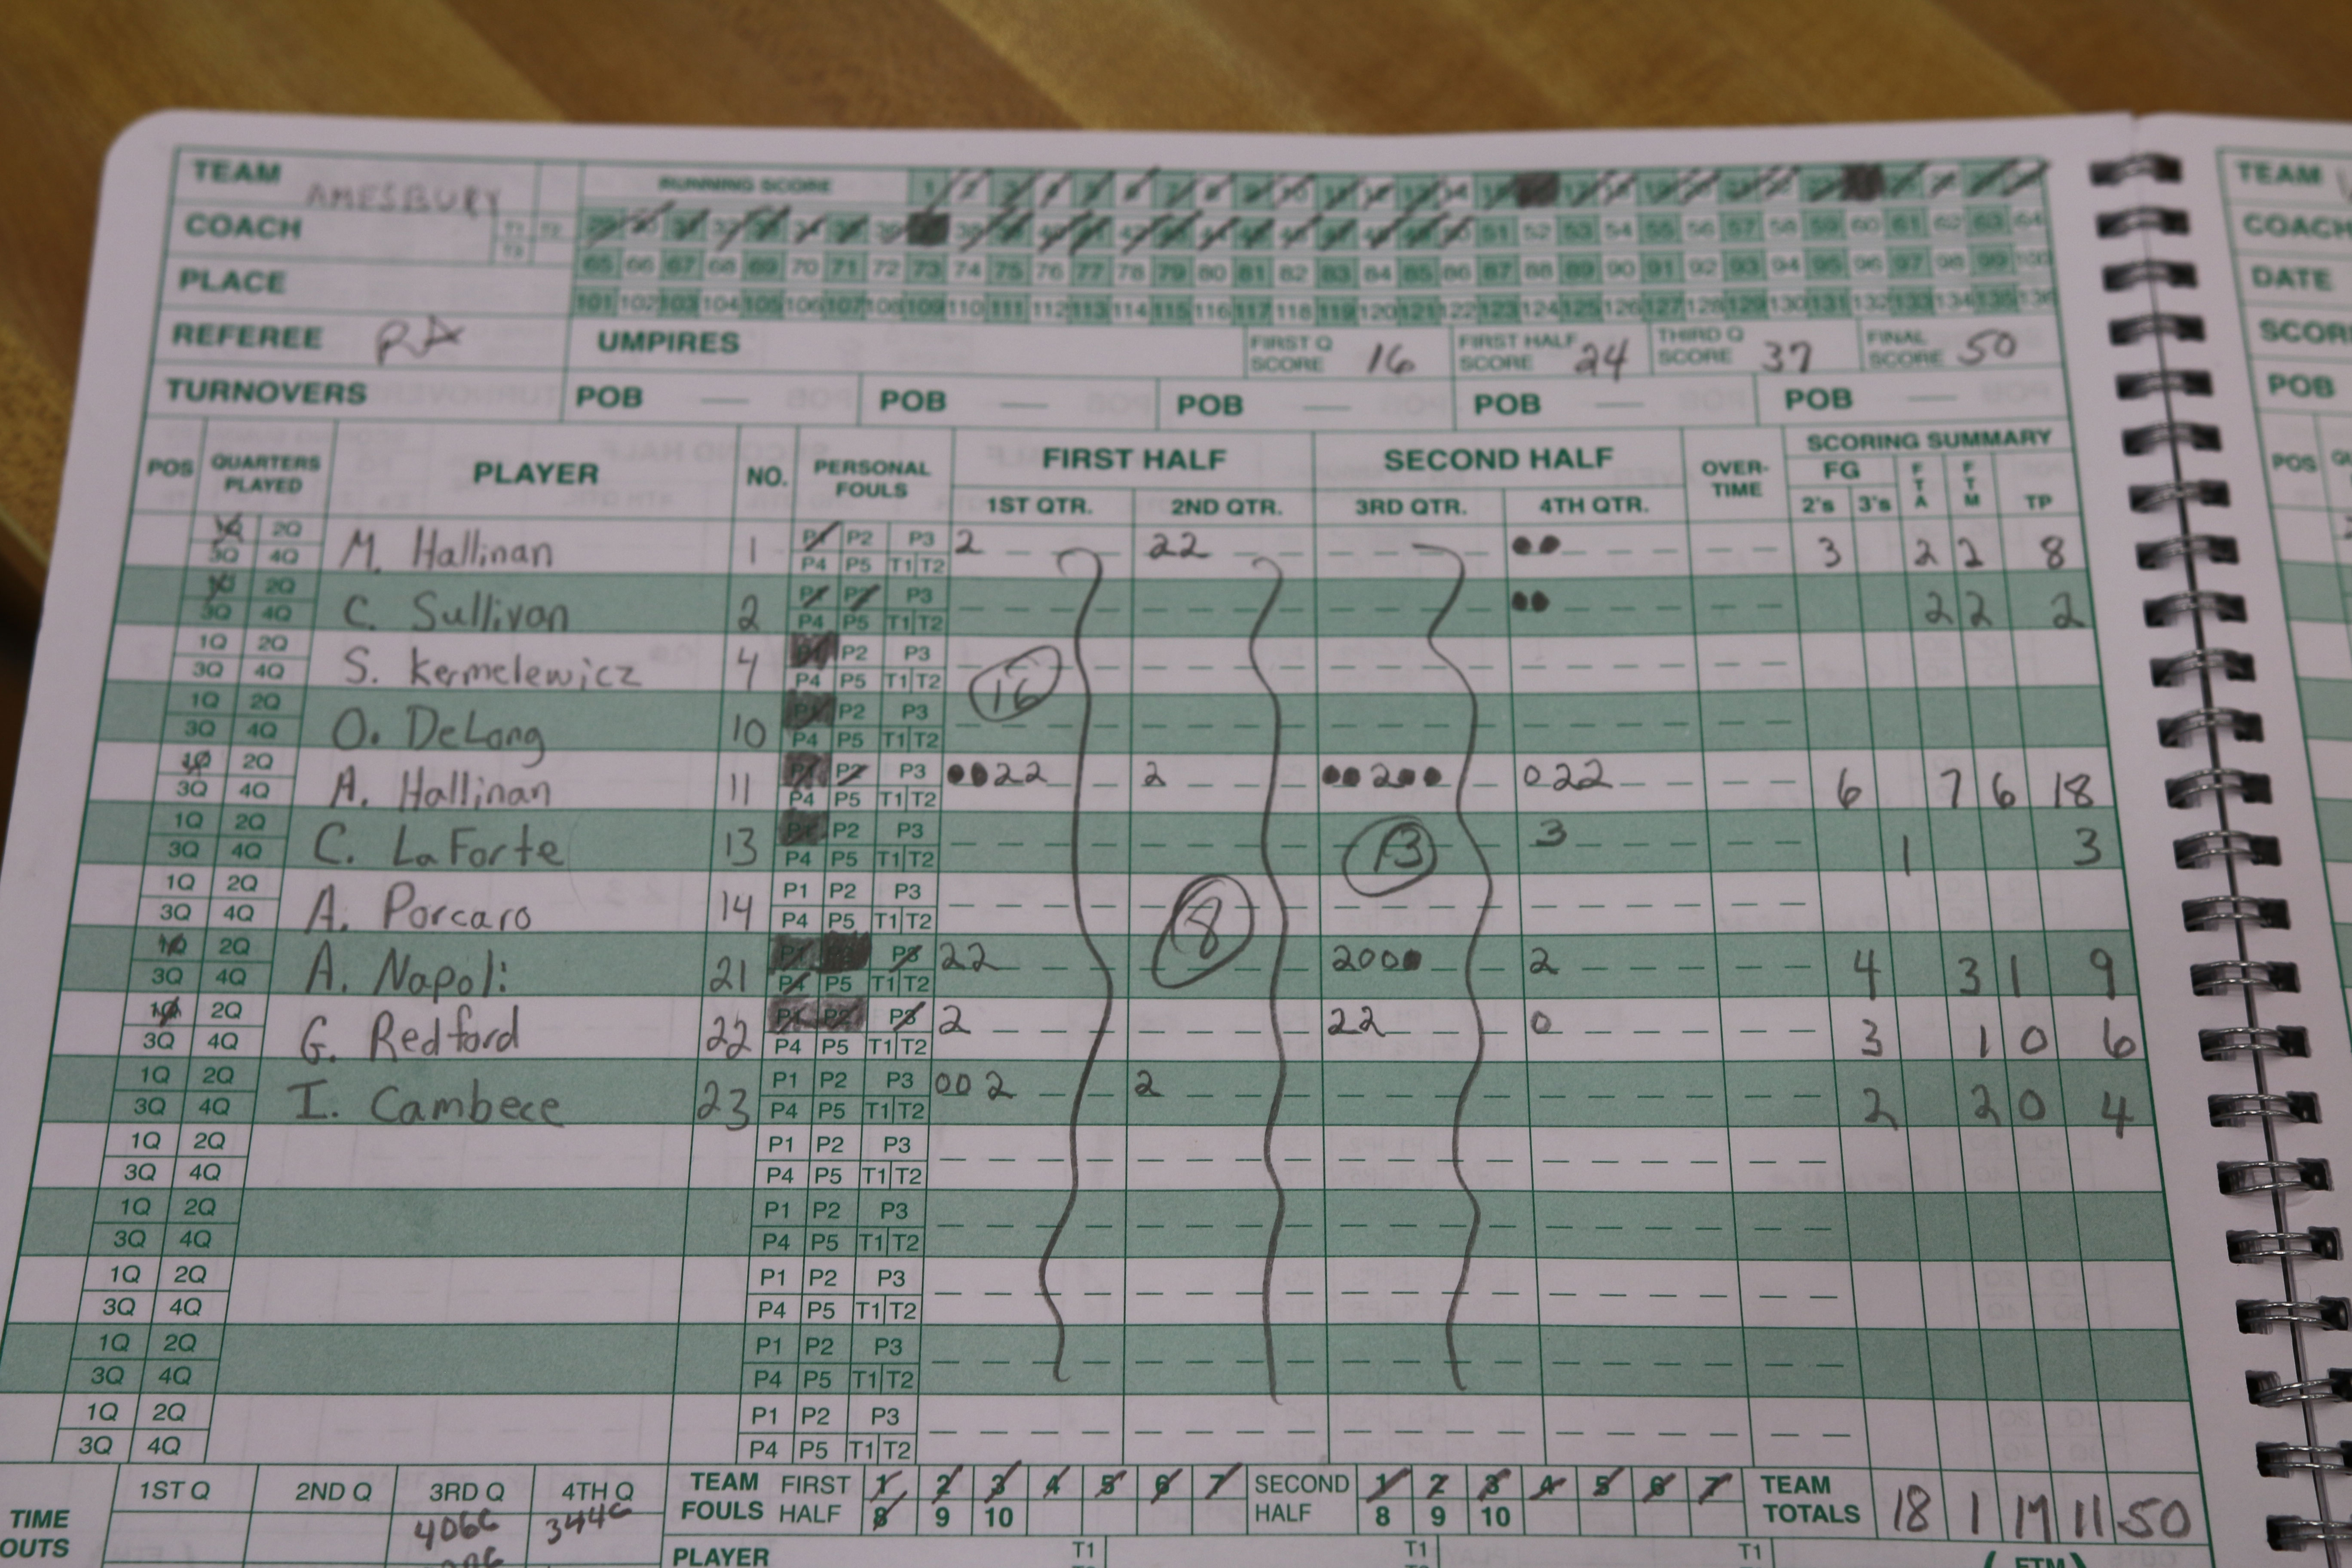 TEAM AMESBURY RUNNING SCORE 1 2 3 4 5 6 7 8 9 10 11 12 13 14 15 17 18 19 20 21 22 23 25 26 27 28
COACH T1 T2 T3 29 30 31 32 33 34 35 36 38 39 40 41 42 43 44 45 46 47 48 49 50 51 52 53 54 55 56 57 58 59 60 61 62 63 64
65 66 67 68 69 70 71 72 73 74 75 76 77 78 79 80 81 82 83 84 85 86 87 88 89 90 91 92 93 94 95 96 97 98 99 100
PLACE 101 102 103 104 105 106 107 108 109 110 111 112 113 114 115 116 117 118 119 120 121 122 123 124 125 126 127 128 129 130 131 132 133 134 135 136
REFEREE UMPIRES FIRST Q SCORE 16 FIRST HALF SCORE 24 THIRD Q SCORE 37 FINAL SCORE 50
TURNOVERS POB — POB — POB — POB — POB —
POS QUARTERS PLAYED PLAYER NO. PERSONAL FOULS FIRST HALF SECOND HALF OVER-TIME SCORING SUMMARY
1ST QTR. 2ND QTR. 3RD QTR. 4TH QTR. FG 2's 3's FTA FTM TP
1Q 2Q 3Q 4Q M. Hallinan 1 P1 P2 P3 P4 P5 T1 T2 2 22 ●● 3 2 2 8
1Q 2Q 3Q 4Q C. Sullivan 2 P1 P2 P3 P4 P5 T1 T2 ●● 2 2 2
1Q 2Q 3Q 4Q S. Kermelewicz 4 P1 P2 P3 P4 P5 T1 T2 16
1Q 2Q 3Q 4Q O. DeLong 10 P1 P2 P3 P4 P5 T1 T2
1Q 2Q 3Q 4Q A. Hallinan 11 P1 P2 P3 P4 P5 T1 T2 ●●22 2 ●●2●● 022 6 7 6 18
1Q 2Q 3Q 4Q C. LaForte 13 P1 P2 P3 P4 P5 T1 T2 13 3 1 3
1Q 2Q 3Q 4Q A. Porcaro 14 P1 P2 P3 P4 P5 T1 T2 8
1Q 2Q 3Q 4Q A. Napoli 21 P1 P3 P4 P5 T1 T2 22 200● 2 4 3 1 9
1Q 2Q 3Q 4Q G. Redford 22 P1 P2 P3 P4 P5 T1 T2 2 22 0 3 1 0 6
1Q 2Q 3Q 4Q I. Cambece 23 P1 P2 P3 P4 P5 T1 T2 002 2 2 2 0 4
1Q 2Q 3Q 4Q P1 P2 P3 P4 P5 T1 T2
1Q 2Q 3Q 4Q P1 P2 P3 P4 P5 T1 T2
1Q 2Q 3Q 4Q P1 P2 P3 P4 P5 T1 T2
1Q 2Q 3Q 4Q P1 P2 P3 P4 P5 T1 T2
1Q 2Q 3Q 4Q P1 P2 P3 P4 P5 T1 T2
TIME OUTS 1ST Q 2ND Q 3RD Q 4TH Q TEAM FOULS FIRST HALF 1 2 3 4 5 6 7 8 9 10 SECOND HALF 1 2 3 4 5 6 7 8 9 10 TEAM TOTALS 18 1 17 11 50
PLAYER T1 T1 T1 (FTM)
TEAM
COACH
DATE
SCOR
POB
POS